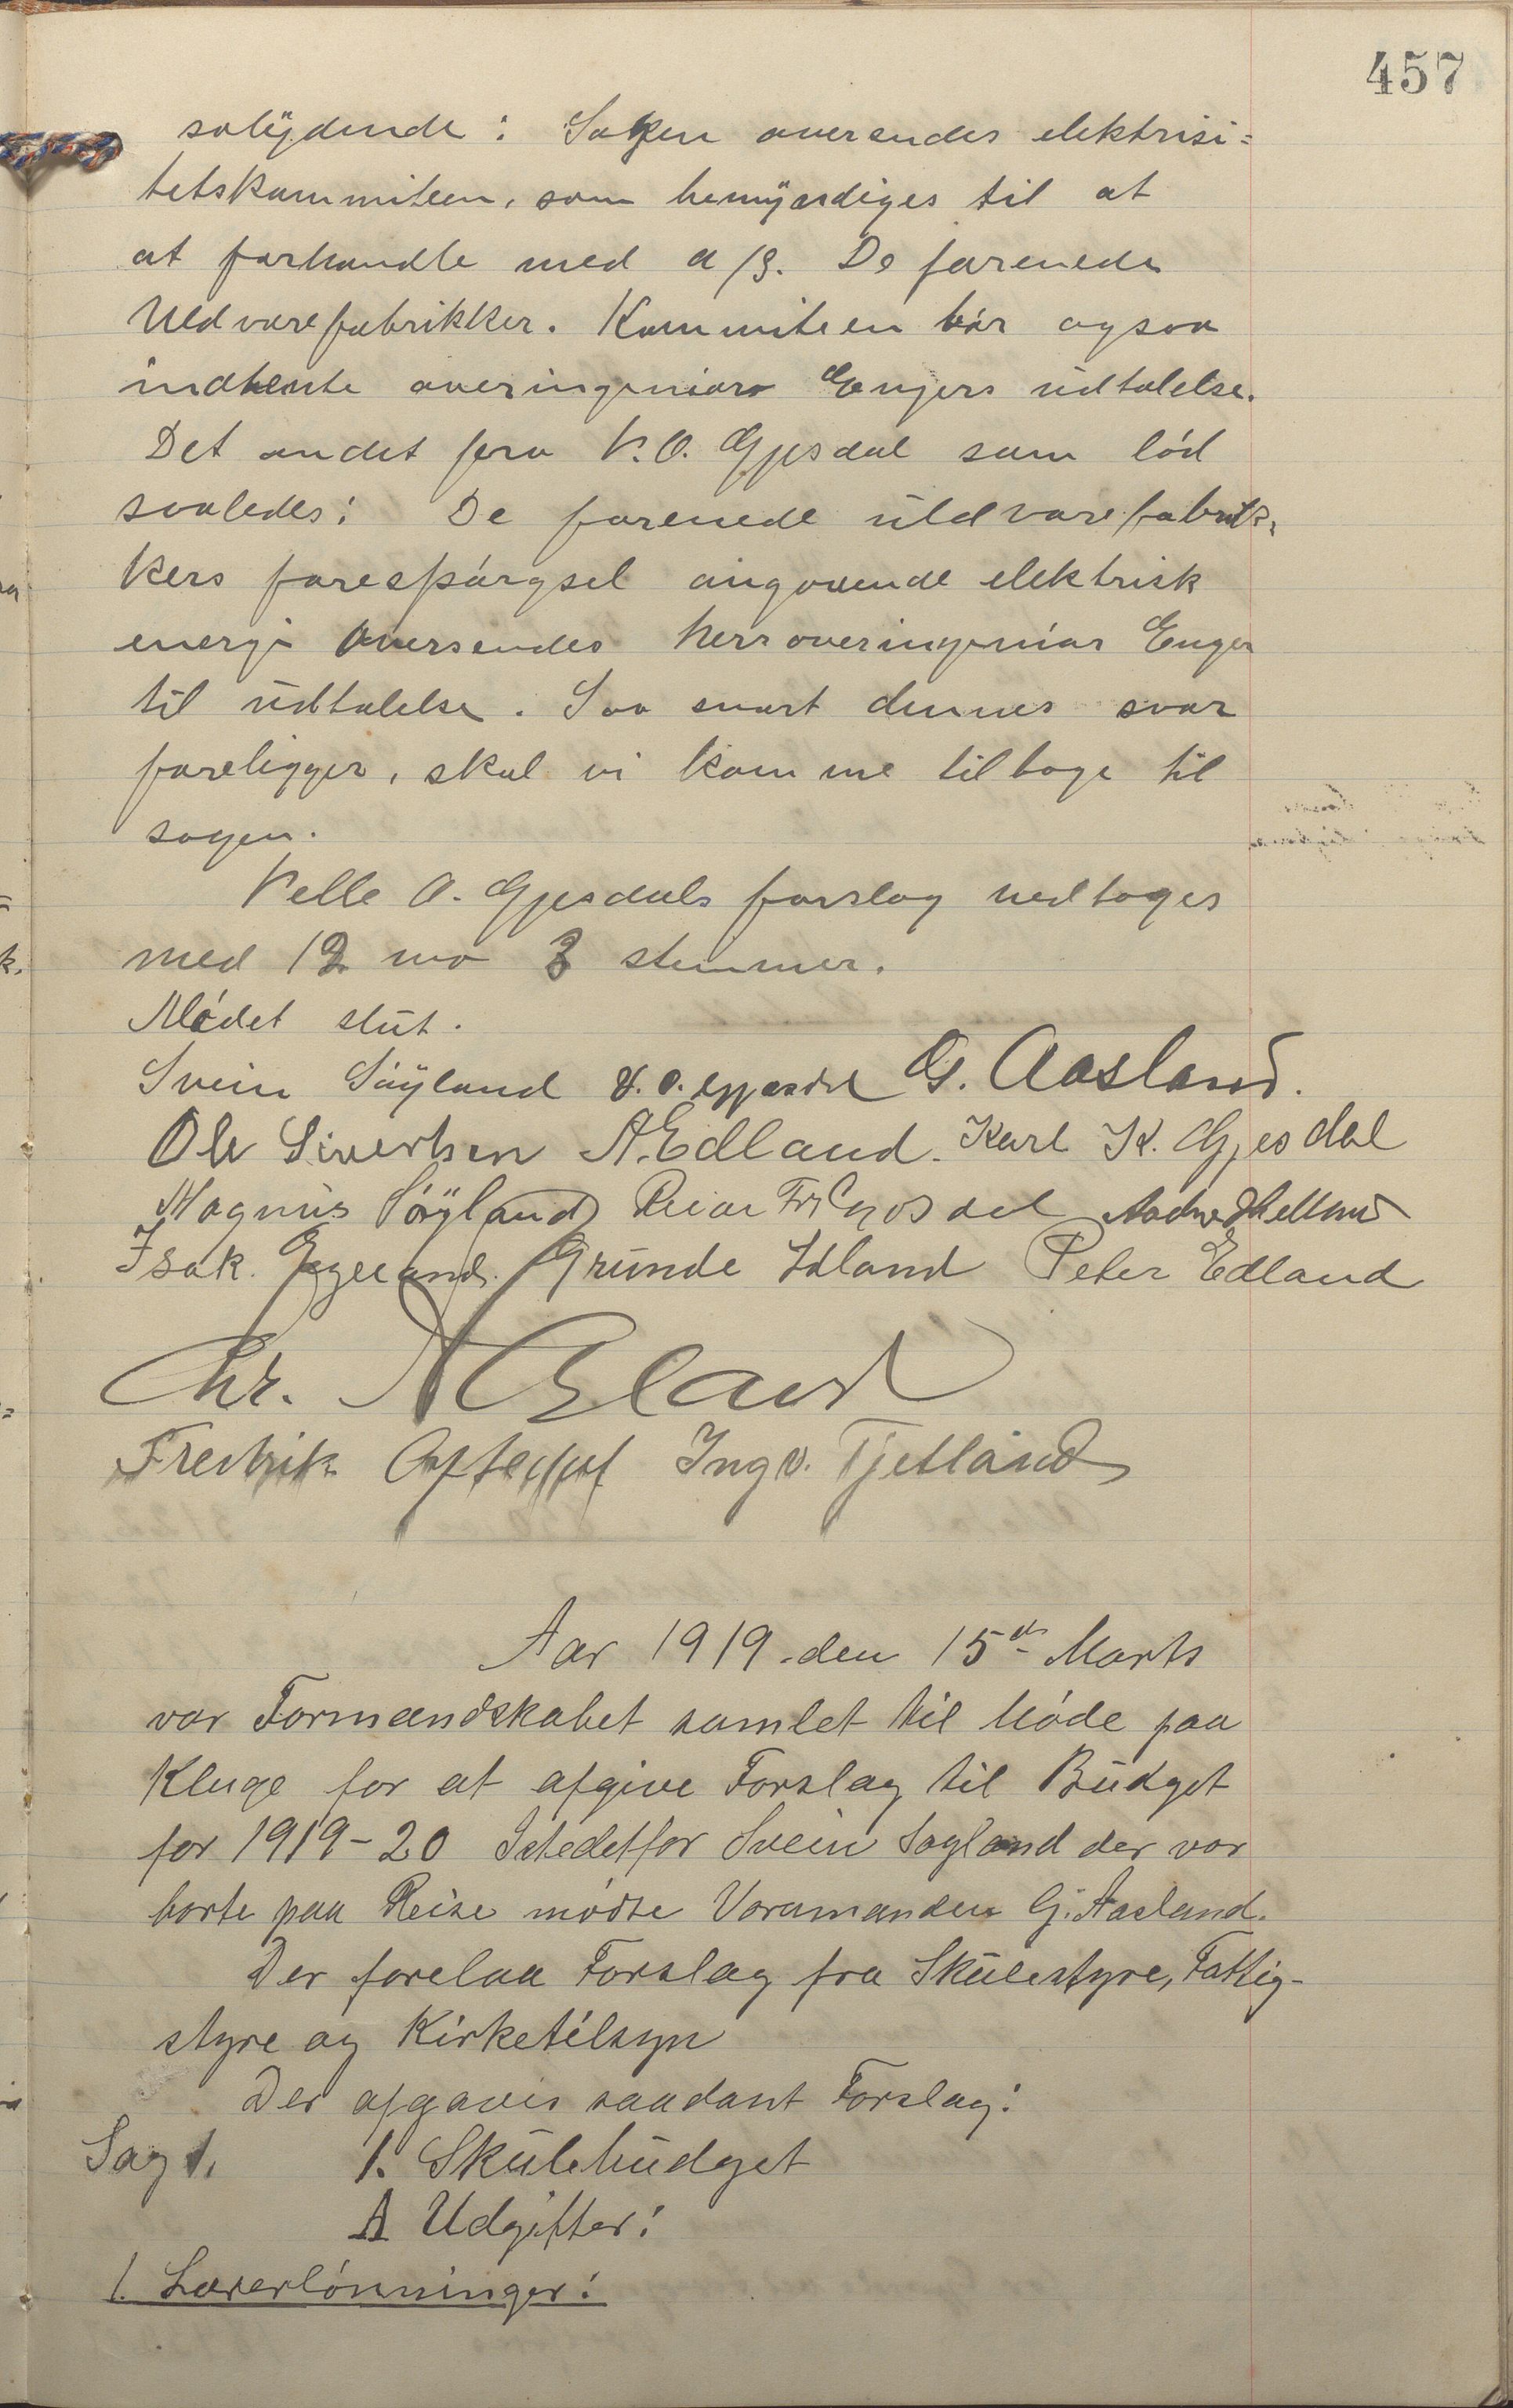 457
solydende: Saken oversendes elektrisi=
tetskommiteen, som bemyndiges til at
at forhandle med a/s. De forenede
Uldvarefabrikker. Kommiteen bør ogsaa
indhente overingeniør Engers udtalelse.
Det andet fra V.O. Gjesdal som lød
saaledes: De forenede uldvarefabrik-
kers forespørgsel angaaende elektrisk
energi oversendes herr overingeniør Enger
til udtalelse. Saa snart dennes svar
foreligger, skal vi komme tilbage til
sagen.
Velle O. Gjesdals forslag vedtoges
med 12 mo 3 stemmer.
Mødet slut.
Svein Søyland V. O. Gjesdal G. Aasland.
Ole Sivertsen A. Edland. Karl K. Gjesdal
Magnus Söyland Peiar Fr Gjosdal Aadne Helland
Isak Eggeland. Grunde Idland Peter Edland
Chr. A Egland
Fredrik Auftedal Ingv. Tjetland
Aar 1919 den 15de Marts
var Formandskabet samlet til Møde paa
Kluge for at afgive Forslag til Budget
for 1919-20 Istedetfor Svein Søyland der var
borte paa Reise mødte Varamanden G. Aasland.
Der forelaa Forslag fra Skulestyre, Fattig-
styre og Kirketilsyn
Der afgaves saadant Forslag:
Sag 1. 1. Skulebudget
A Udgifter:
1. Lærerlønninger: